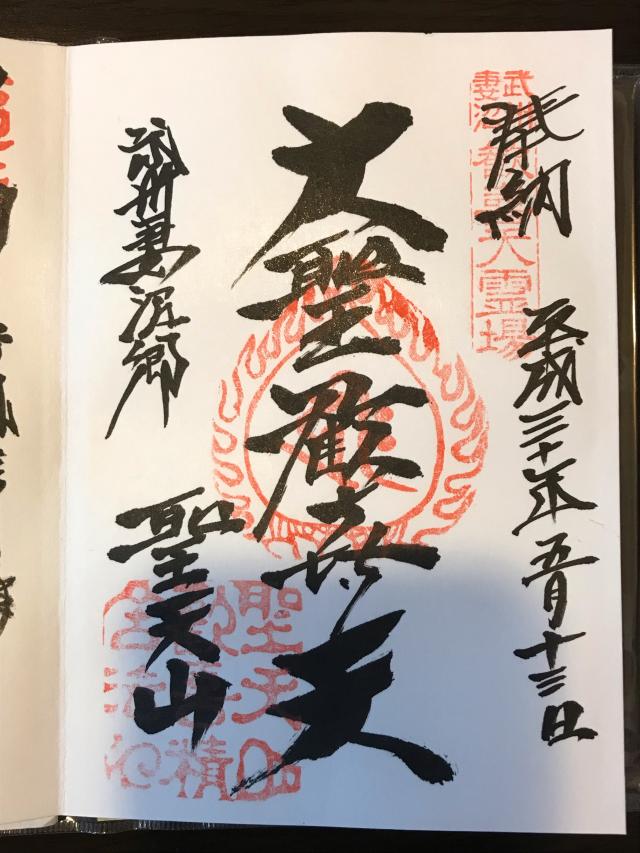 奉納
平成三十年五月十三日
武州
妻沼
霊場
大聖歓喜天
武州妻沼郷
聖天山
聖天山